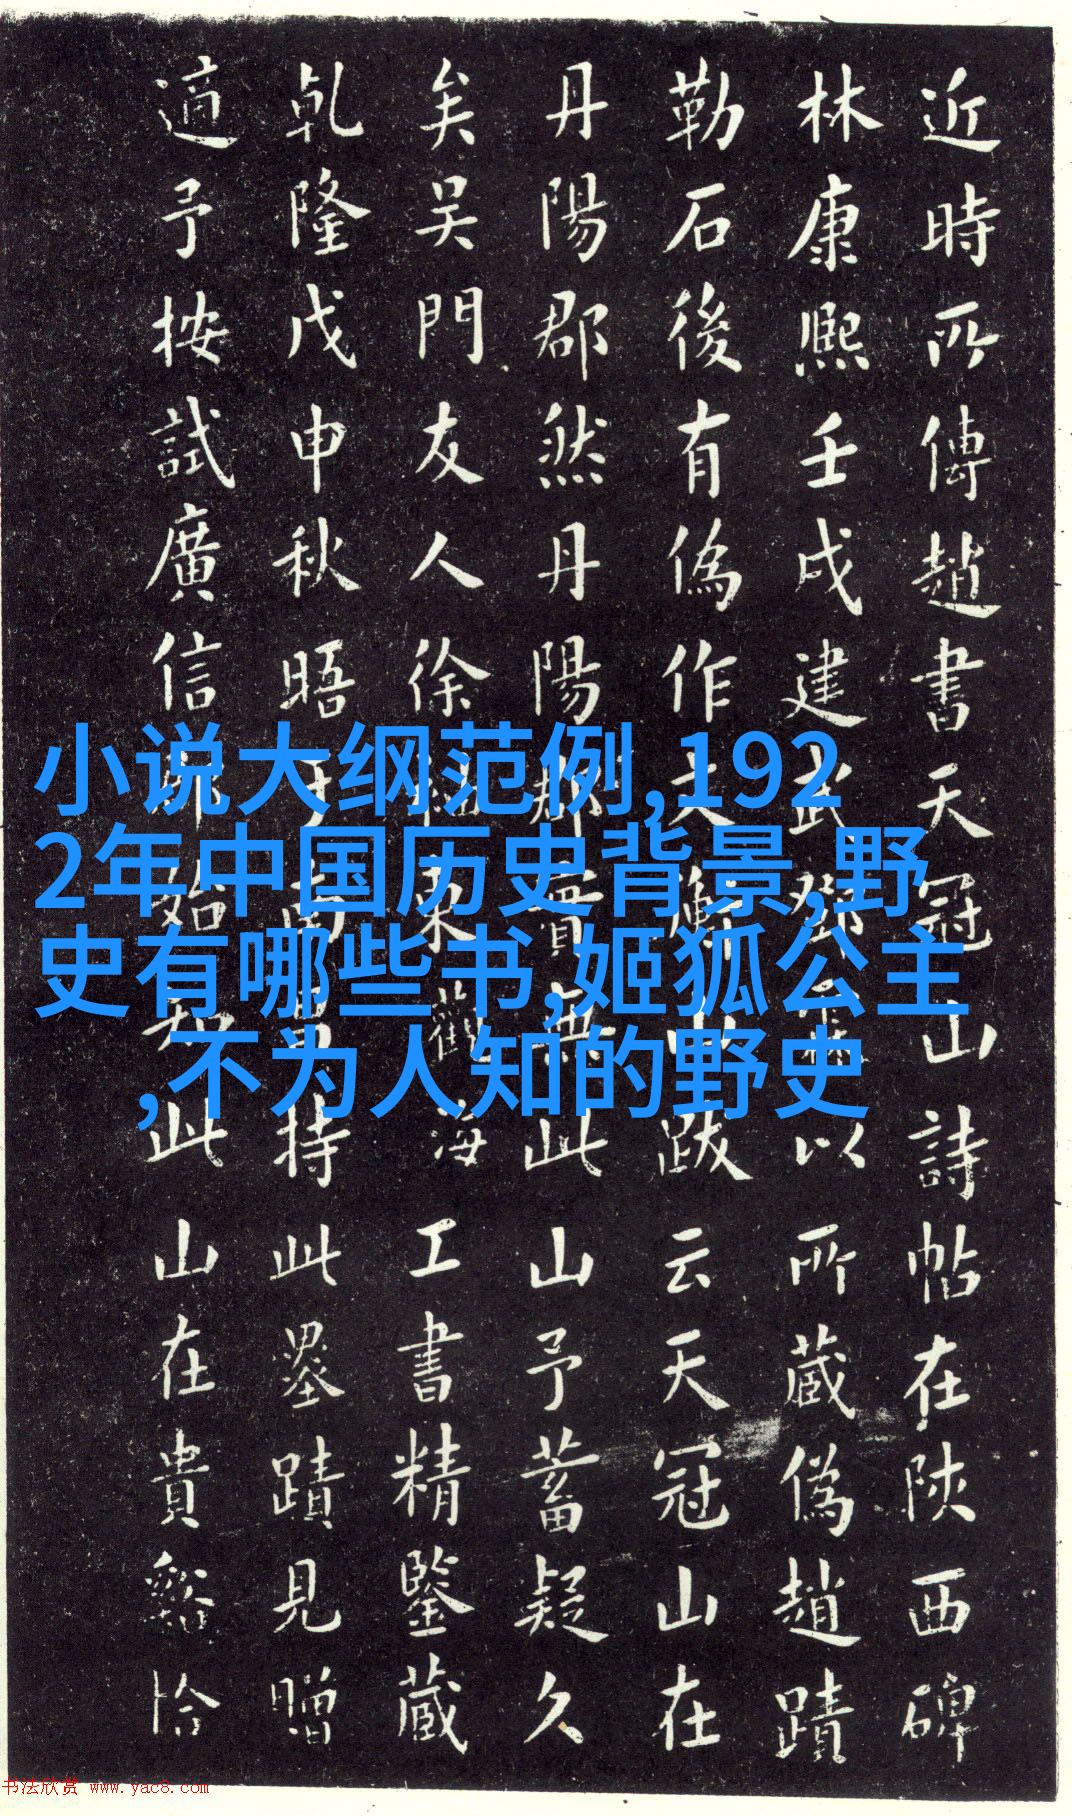 近時所傳趙書天冠山詩帖在陝西碑
林康熙壬戌建武鄧以所藏偽趙蹟
勒石後有偽作文衡山跋云天冠山在
丹陽郡然丹陽郡實無此山予蓄疑久
矣吳門友人徐東觀海工書精鑒藏
乾隆戊申秋晤于南昌持此墨蹟見贈
適予按試廣信郡始知此山在貴谿恰
小说大纲范例,192
2年中国历史背景,野
史有哪些书,姬狐公主
,不为人知的野史
书法欣赏 www.yac8.com